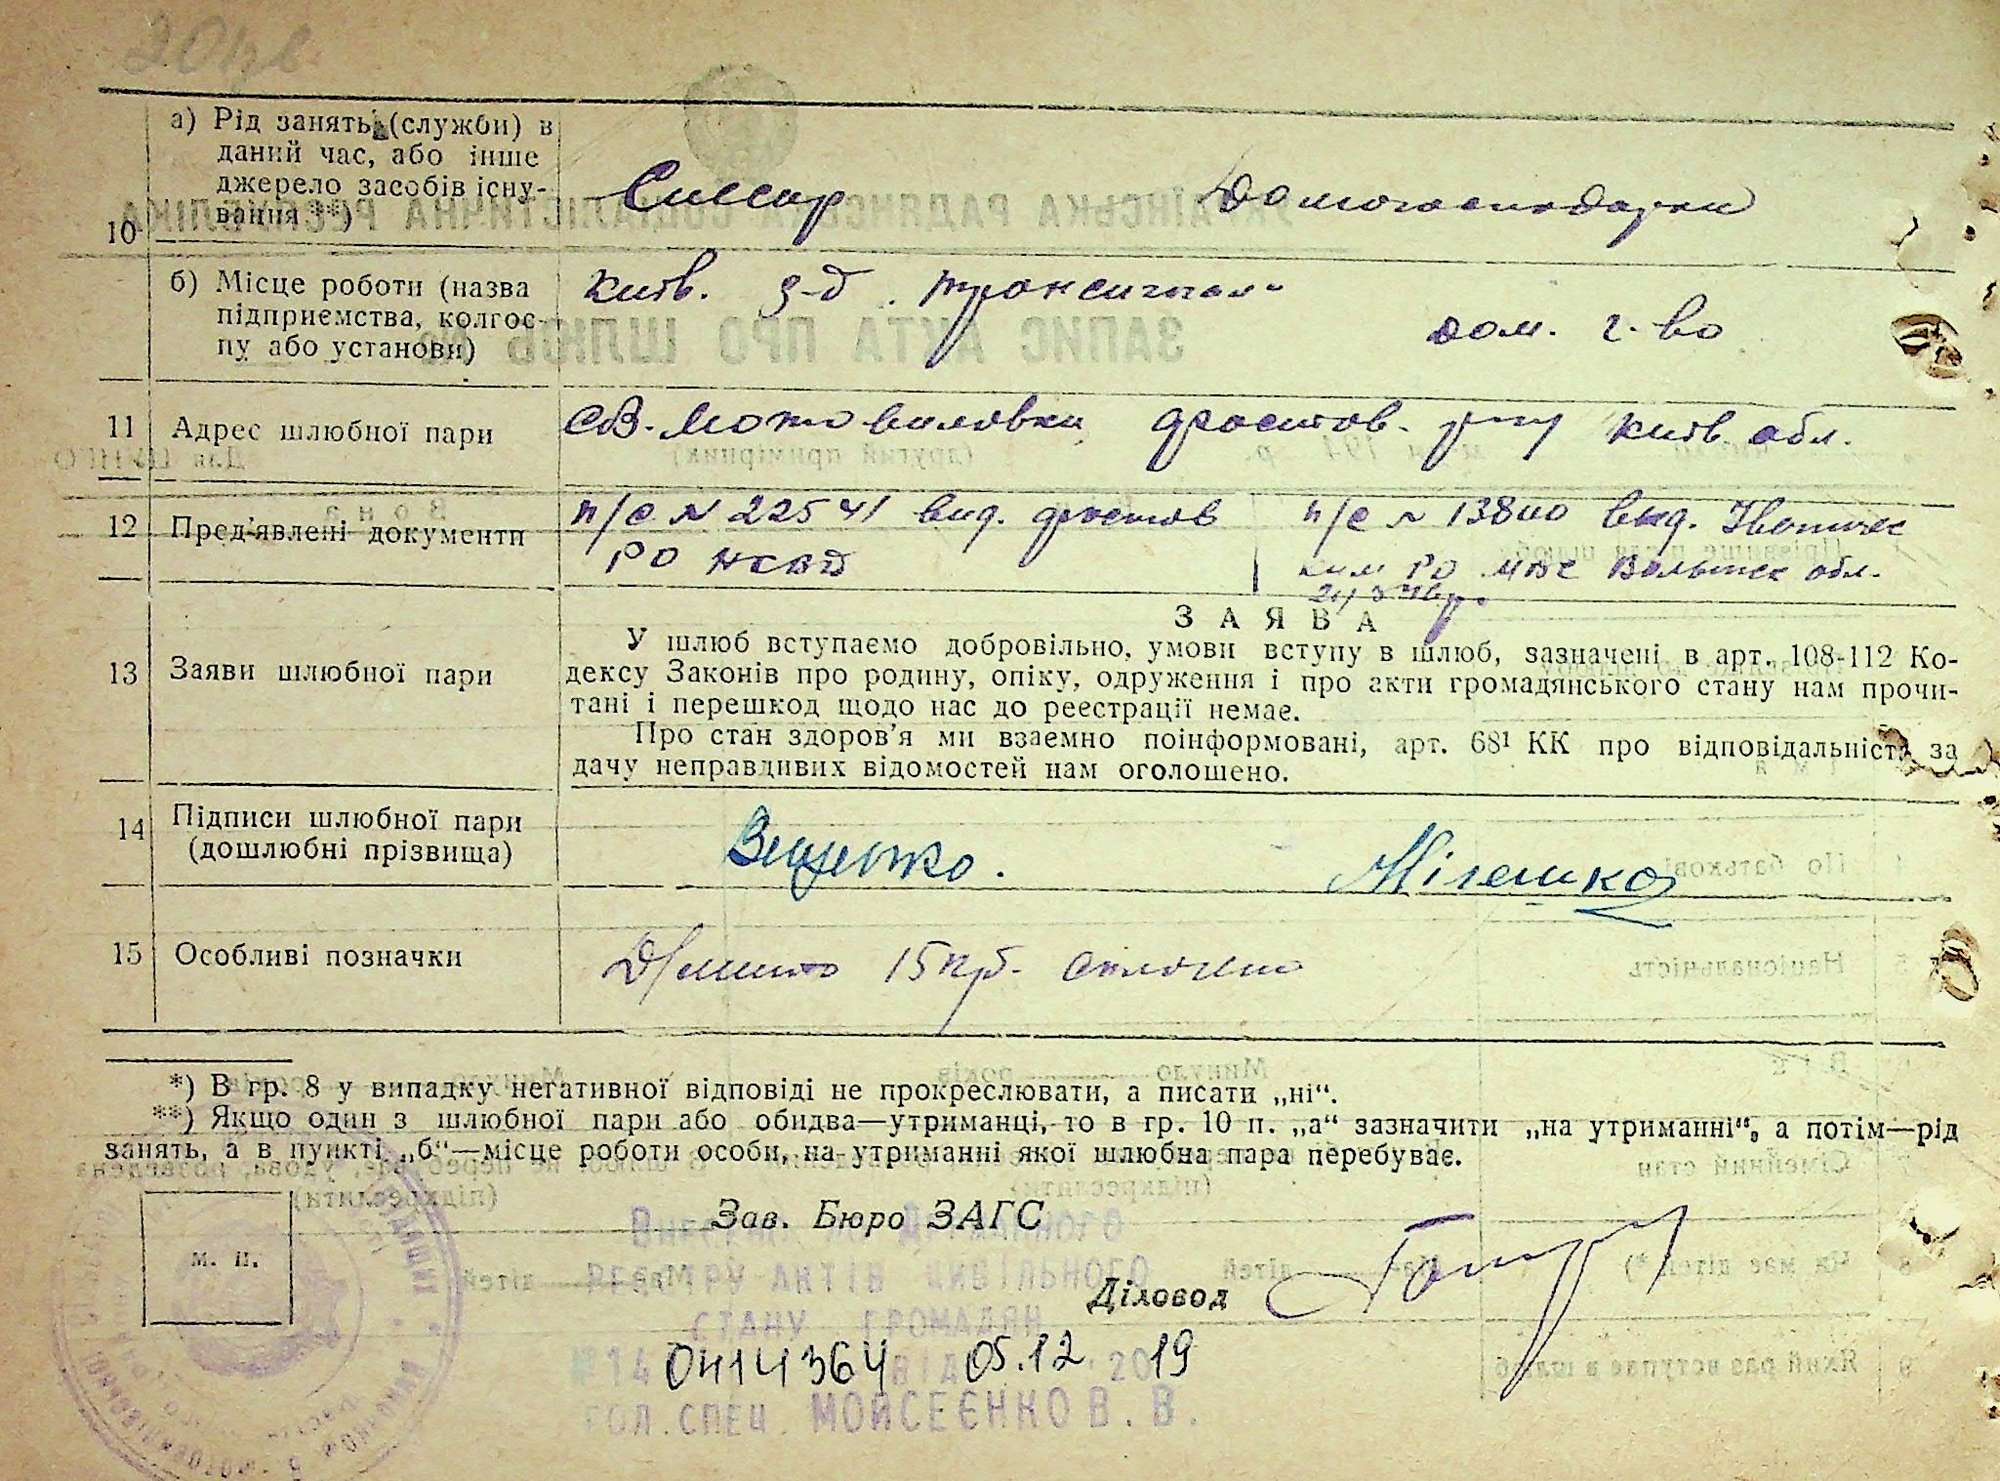 а) Рід занять (служби) в
даний час, або інше
джерело засобів існу-
вання **)
10
Слесар
Домогосподарка
б) Місце роботи (назва
підприємства, колгос-
пу або установи)
Київ. з-д
дом. г-во
11 Адрес шлюбної пари
Мотовиловка Фастов. р-ну Київ. обл.
12 Пред'явлені документи
п/с № 22541 вид. Фастов
РО НКВД
п/с № 13800 вид.
РО МВС Волынск обл.
З А Я В А
13 Заяви шлюбної пари
У шлюб вступаємо добровільно, умови вступу в шлюб, зазначені в арт. 108-112 Ко-
дексу Законів про родину, опіку, одруження і про акти громадянського стану нам прочи-
тані і перешкод щодо нас до реєстрації немає.
Про стан здоров'я ми взаємно поінформовані, арт. 68¹ КК про відповідальність за
дачу неправдивих відомостей нам оголошено.
14 Підписи шлюбної пари
(дошлюбні прізвища)
Ващенко.
Мігешко
15 Особливі позначки
15 крб.
*) В гр. 8 у випадку негативної відповіді не прокреслювати, а писати „ні“.
**) Якщо один з шлюбної пари або обидва—утриманці, то в гр. 10 п. „а“ зазначити „на утриманні“, а потім—рід
занять, а в пункті „б“—місце роботи особи, на утриманні якої шлюбна пара перебуває.
М. П.
Зав. Бюро ЗАГС
Внесено до Державного
реєстру актів цивільного
стану громадян
Діловод
№ 14 0414364 від 05.12 2019
гол. спец. Мойсеєнко В. В.